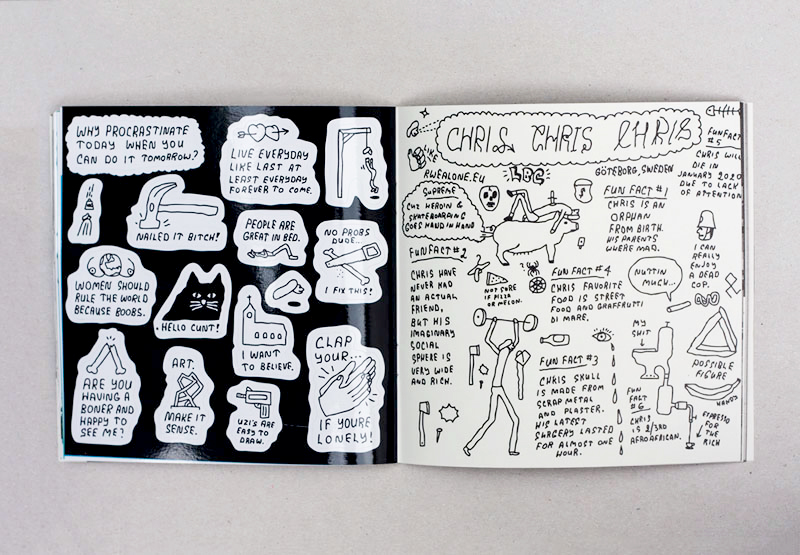 WHY PROCRASTINATE
TODAY WHEN YOU
CAN DO IT TOMORROW?
LIVE EVERYDAY
LIKE LAST AT
LEAST EVERYDAY
FOREVER TO COME.
NAILED IT BITCH!
PEOPLE ARE
GREAT IN BED.
NO PROBS
DUDE...
I FIX THIS!
WOMEN SHOULD
RULE THE WORLD
BECAUSE BOOBS.
HELLO CUNT!
I WANT
TO BELIEVE.
CLAP
YOUR...
IF YOURE
LONELY!
ARE YOU
HAVING A
BONER AND
HAPPY TO
SEE ME?
ART.
MAKE IT
SENSE.
UZI'S ARE
EASY TO
DRAW.
CHRIS CHRIS CHRIS
LIKE
RWFALONE.EU
LBC
GÖTEBORG, SWEDEN
FUNFACT
#5
CHRIS WILL
DIE IN
JANUARY 2020
DUE TO LACK
OF ATTENTION
SUPREME
CUZ HEROIN &
SKATEBOARDING
GOES HAND IN HAND
FUN FACT #1
CHRIS IS AN
ORPHAN
FROM BIRTH.
HIS PARENTS
WHERE MAD.
I CAN
REALLY
ENJOY
A DEAD
COP.
FUNFACT #2
CHRIS HAVE
NEVER HAD
AN ACTUAL
FRIEND,
BUT HIS
IMAGINARY
SOCIAL
SPHERE IS
VERY WIDE
AND RICH.
NOT SURE
IF PIZZA
OR MELON.
FUN FACT #4
CHRIS FAVORITE
FOOD IS STREET
FOOD AND GRAFFRUTTI
DI MARE.
NUTTIN
MUCH...
MY
SHIT
POSSIBLE
FIGURE
FUN FACT #3
CHRIS SKULL
IS MADE FROM
SCRAP METAL
AND PLASTER.
HIS LATEST
SURGERY LASTED
FOR ALMOST ONE
HOUR.
FUN
FACT
#6
CHRIS
IS 2/3RD
AFROAFRICAN.
ESPRESSO
FOR
THE
RICH